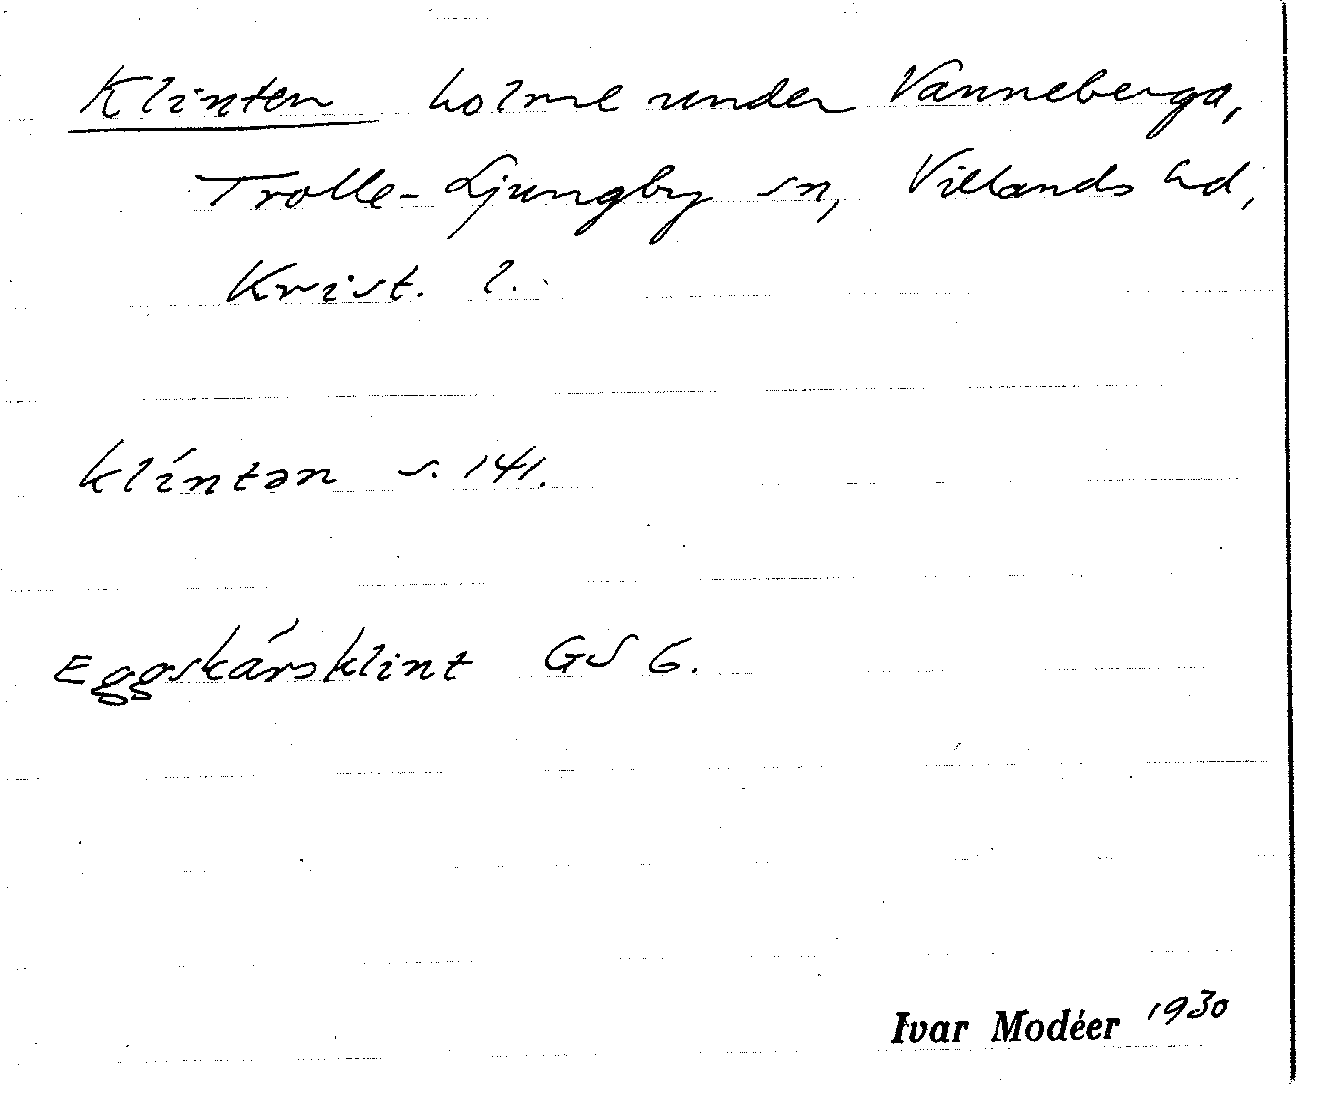 Klinten holme under Vanneberga,
Trolle-Ljungby sn, Villands hd,
Krist. l.
klíntən s. 141.
Eggskársklint GS 6.
Ivar Modéer 1930